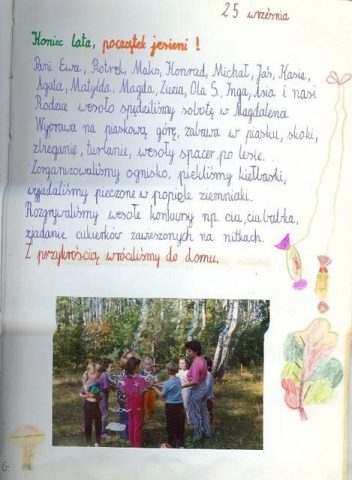 25 września
Koniec lata, początek jesieni!
Pani Ewa, Piotrek, Maks, Konrad, Michał, Jaś, Kasie,
Agata, Matylda, Magda, Zuzia, Ola S., Inga, Asia i nasi
Rodzice wesoło spędziliśmy sobotę w Magdalena.
Wyprawa na piaskową górę, zabawa w piasku, skoki,
zbieganie, turlanie, wesoły spacer po lesie.
Zorganizowaliśmy ognisko, piekliśmy kiełbaski,
wyjadaliśmy pieczone w popiele ziemniaki.
Rozgrywaliśmy wesołe konkursy np. ciu, ciu babka,
zjadanie cukierków zawieszonych na nitkach.
Z przykrością wróciliśmy do domu.